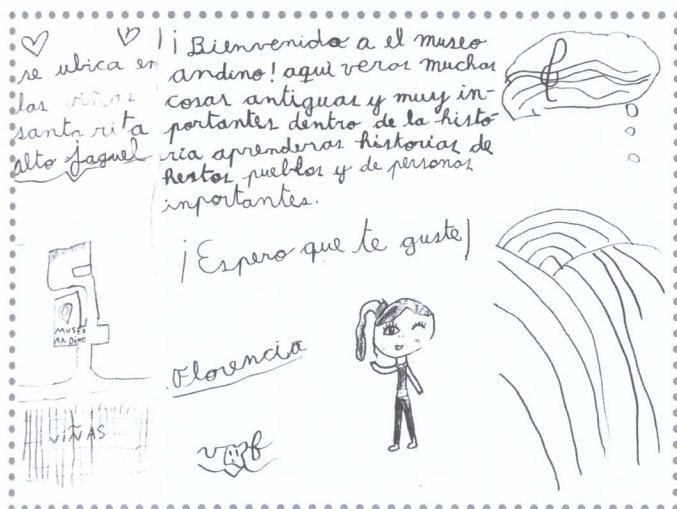 se ubica en
las viñas
santa rita
alto jaguel
¡Bienvenido a el museo
andino! aquí veras muchas
cosas antiguas y muy in-
portantes dentro de la histo-
ria aprenderas historias de
restos pueblos y de personas
inportantes.
¡Espero que te guste!
Florencia
MUSEO
ANDINO
VIÑAS